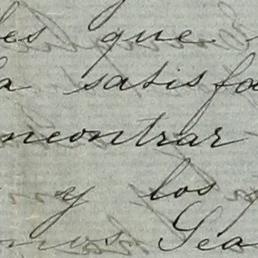 les que
la satisfa
ncontrar
y los
mos Sea